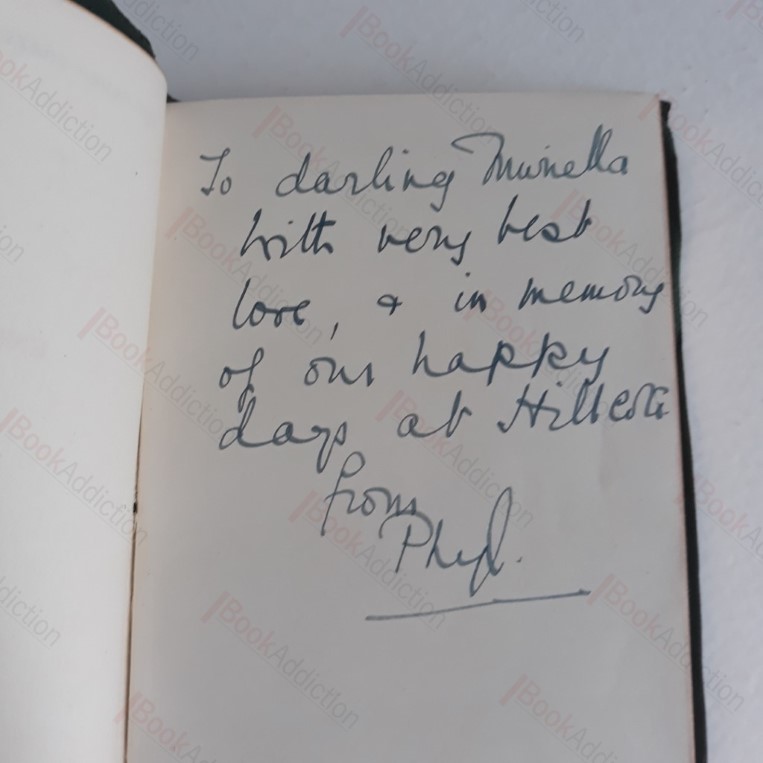 To darling
with very best
love, & in memory
of our happy
days at
from
Phyl.
BookAddiction